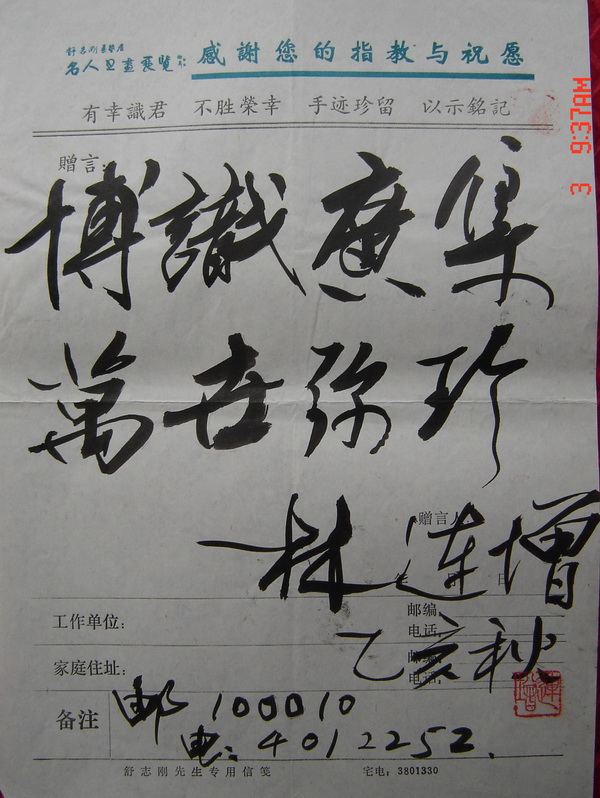 舒志刚
名人书画展览
感謝您的指教与祝愿
有幸識君 不胜榮幸 手迹珍留 以示銘記
3 9:37AM
赠言:
博識廣集
萬世弥珍
赠言人
林连增
年 月 日
工作单位: 邮编:
电话:
乙亥秋
家庭住址: 邮编:
电话:
备注 邮 100010
电: 4012252.
舒志刚先生专用信笺 宅电: 3801330